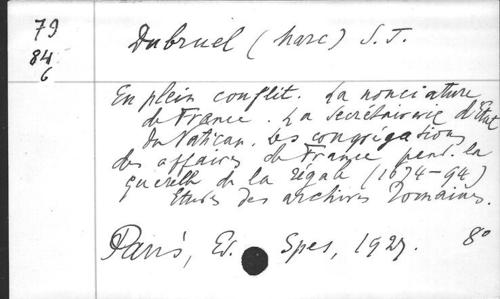 79
84
6
Dubruel (Marc) S. J.
En plein conflit. La nonciature
de France. La Secrétairerie d'État
du Vatican. Les congrégations
des affaires de France pend. la
querelle de la régale (1674-94)
Etudes des archives Romaines.
Paris, Ed. Spes, 1927. 8°